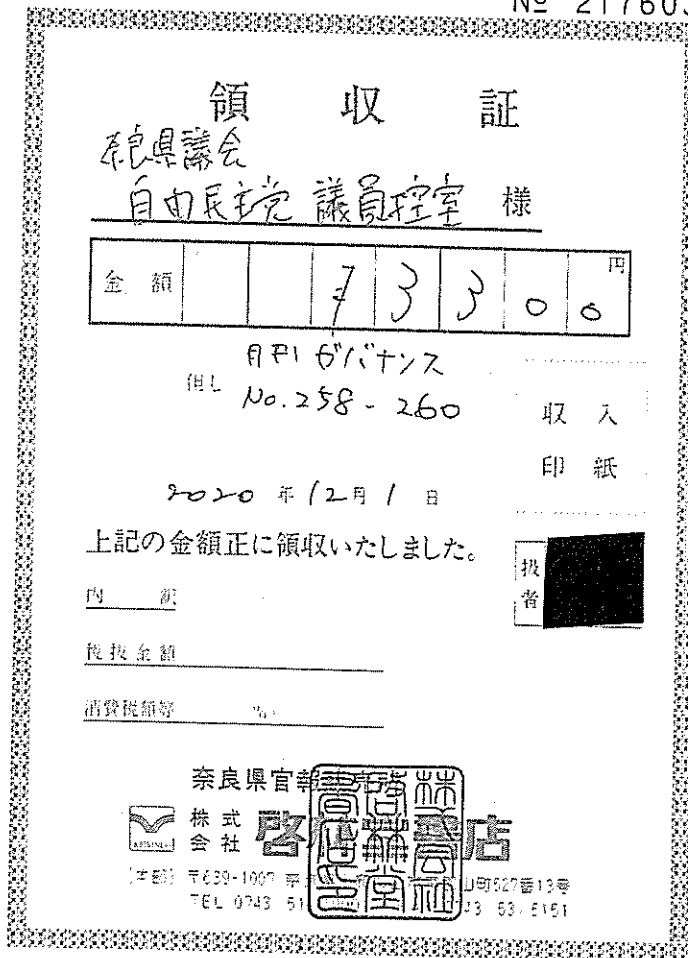 № 217603
領収証
奈良県議会
自由民主党 議員控室 様
金額 ¥3300円
月刊 ガバナンス
但し No.258-260
収入
印紙
2020年12月1日
上記の金額正に領収いたしました。
扱者
内訳
税抜金額
消費税額等 %
奈良県官報
株式会社 啓林堂書店
株式会社啓林堂書店印
〒639-1007 山町527番13号
TEL 0743 51 53-5151